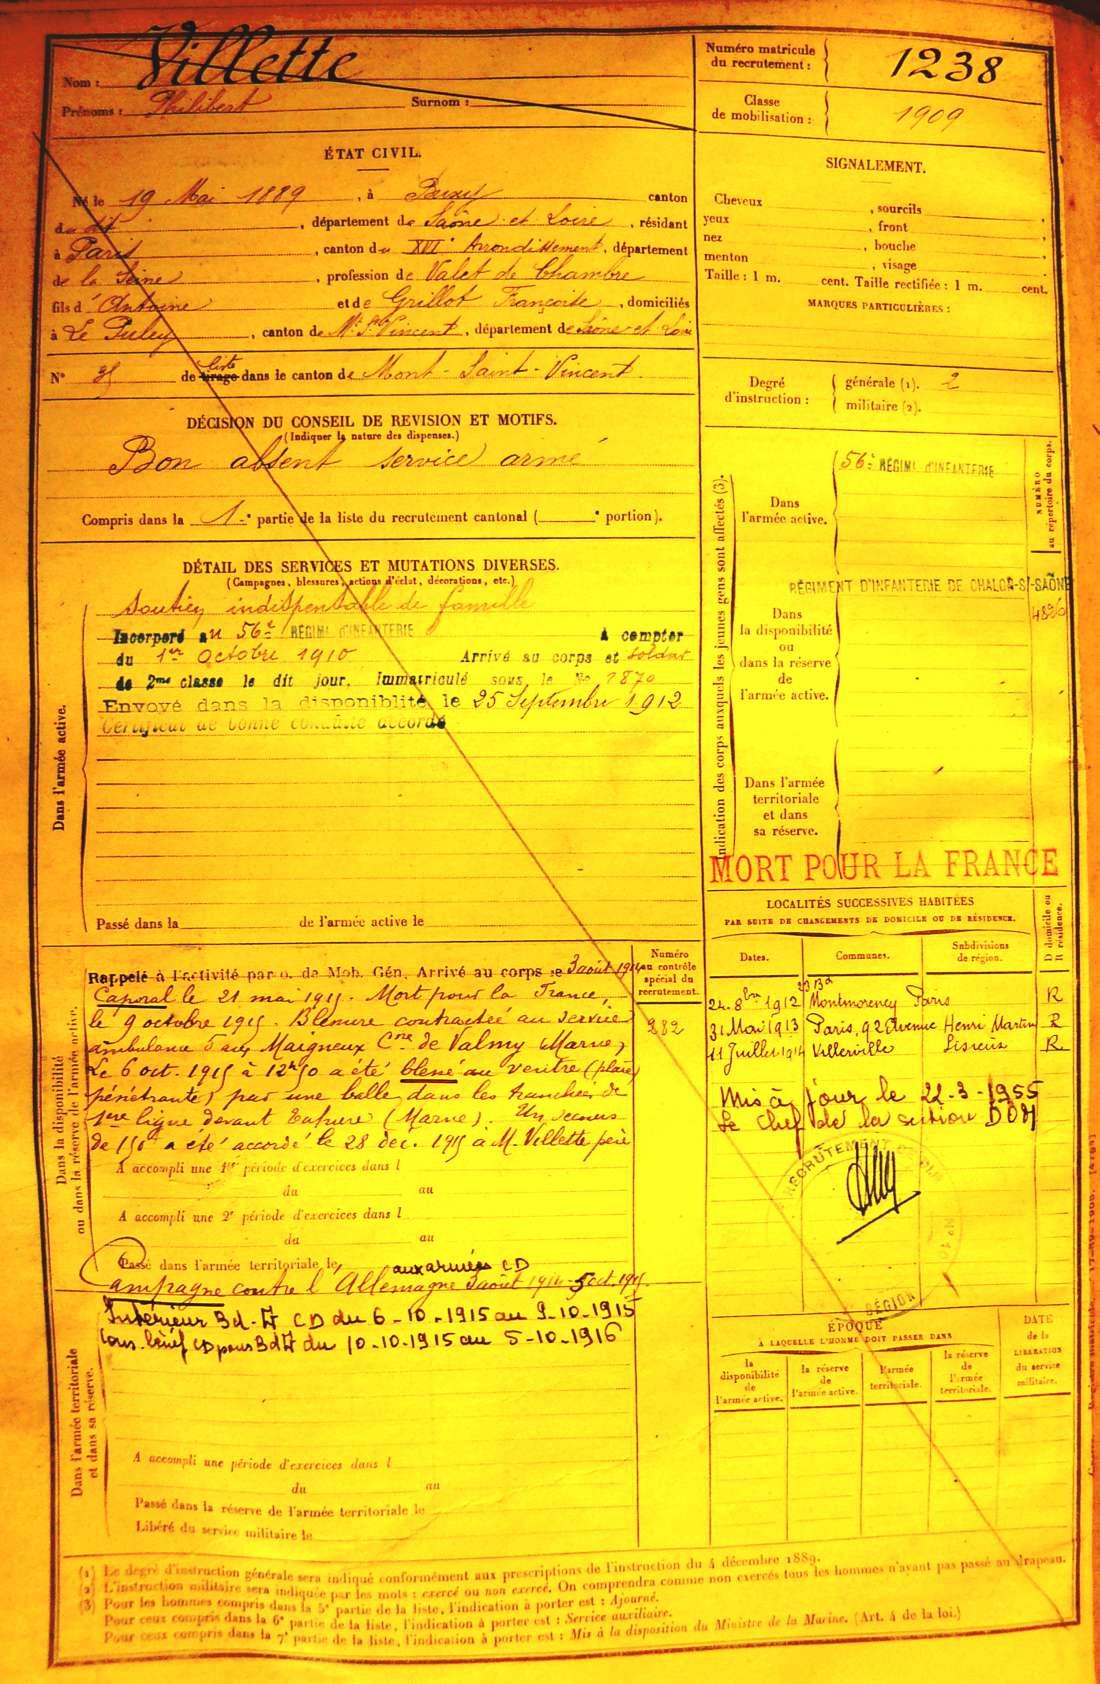 Nom : Villette
Prénoms : Philibert Surnom :
Numéro matricule
du recrutement : 1238
Classe
de mobilisation : 1909
ÉTAT CIVIL.
Né le 19 Mai 1889, à canton
du dit, département de Saône et Loire, résidant
à Paris, canton du XVIe Arrondissement, département
de la Seine, profession de Valet de Chambre
fils d'Antoine et de Grillot Françoise, domiciliés
à Le Puley, canton de Mt St Vincent, département de Saône et Loire
N° 35 de tirage liste dans le canton de Mont-Saint-Vincent
DÉCISION DU CONSEIL DE REVISION ET MOTIFS.
(Indiquer la nature des dispenses.)
Bon absent service armé
Compris dans la 1re partie de la liste du recrutement cantonal ( e portion).
DÉTAIL DES SERVICES ET MUTATIONS DIVERSES.
(Campagnes, blessures, actions d'éclat, décorations, etc.)
Dans l'armée active.
Soutien indispensable de famille
Incorporé au 56e RÉGIMt D'INFANTERIE À compter
du 1er Octobre 1910 Arrivé au corps et soldat
de 2me classe le dit jour. Immatriculé sous le No 7870
Envoyé dans la disponiblité le 25 Septembre 1912
Certificat de bonne conduite accordé
Passé dans la de l'armée active le
Dans la disponibilité
ou dans la réserve de l'armée active.
Rappelé à l'activité par o. de Mob. Gén. Arrivé au corps le 3 août 1914
Caporal le 21 mai 1915. Mort pour la France,
le 9 octobre 1915. Blessure contractée au service
ambulance 5 aux Maigneux Cne de Valmy (Marne)
Le 6 oct. 1915 à 12h50 a été blessé au ventre (plaie
pénétrante) par une balle dans les tranchées de
1ère ligne devant Tahure (Marne). Un secours
de 150f a été accordé le 28 déc. 1915 à M. Villette père
Numéro
au contrôle
spécial du
recrutement.
282
A accompli une 1re période d'exercices dans l
du au
A accompli une 2e période d'exercices dans l
du au
Passé dans l'armée territoriale le
aux armées CD
Campagne contre l'Allemagne 3 août 1914 - 5 oct. 1915.
Dans l'armée territoriale
et dans sa réserve.
Intérieur Bd. CD du 6-10-1915 au 9-10-1915
CD pour du 10-10-1915 au 5-10-1916
A accompli une période d'exercices dans l
du au
Passé dans la réserve de l'armée territoriale le
Libéré du service militaire le
SIGNALEMENT.
Cheveux , sourcils ,
yeux , front ,
nez , bouche ,
menton , visage
Taille : 1 m. cent. Taille rectifiée : 1 m. cent.
MARQUES PARTICULIÈRES :
Degré
d'instruction :
générale (1). 2
militaire (2).
Indication des corps auxquels les jeunes gens sont affectés (3).
NUMÉRO
au répertoire du corps.
Dans
l'armée active.
56e RÉGIMt D'INFANTERIE
RÉGIMENT D'INFANTERIE DE CHALON-S/-SAÔNE
Dans
la disponibilité
ou
dans la réserve
de
l'armée active.
Dans l'armée
territoriale
et dans
sa réserve.
MORT POUR LA FRANCE
LOCALITÉS SUCCESSIVES HABITÉES
PAR SUITE DE CHANGEMENTS DE DOMICILE OU DE RÉSIDENCE.
D domicile ou
R résidence.
Dates. Communes. Subdivisions
de région.
24. 8bre 1912 Bd Montmorency Paris R
31 Mai 1913 Paris, 92 Avenue Henri Martin R
11 Juillet 1914 Villerville Lisieux R
Mis à jour le 22-3-1955
Le Chef de la section
RECRUTEMENT
RÉGION
ÉPOQUE
À LAQUELLE L'HOMME DOIT PASSER DANS
la
disponibilité
de
l'armée active.
la réserve
de
l'armée active.
l'armée
territoriale.
la réserve
de
l'armée
territoriale.
DATE
de la
LIBÉRATION
du service
militaire.
(1) Le degré d'instruction générale sera indiqué conformément aux prescriptions de l'instruction du 4 décembre 1889.
(2) L'instruction militaire sera indiquée par les mots : exercé ou non exercé. On comprendra comme non exercés tous les hommes n'ayant pas passé au drapeau.
(3) Pour les hommes compris dans la 5e partie de la liste, l'indication à porter est : Ajourné.
Pour ceux compris dans la 6e partie de la liste, l'indication à porter est : Service auxiliaire.
Pour ceux compris dans la 7e partie de la liste, l'indication à porter est : Mis à la disposition du Ministre de la Marine. (Art. 4 de la loi.)